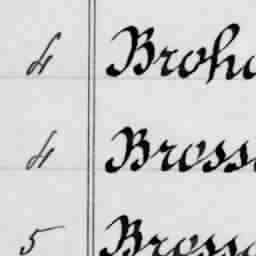 4 Broh
4 Bross
5 Bross